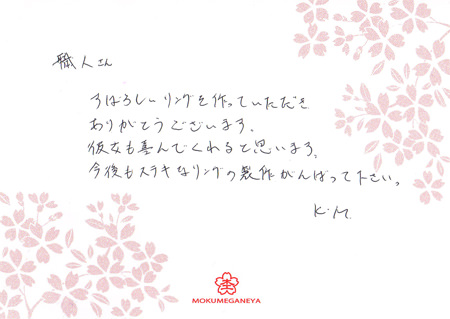 職人さん
すばらしいリングを作っていただき
ありがとうございます。
彼女も喜んでくれると思います。
今後もステキなリングの製作がんばって下さい。
K.M
MOKUMEGANEYA